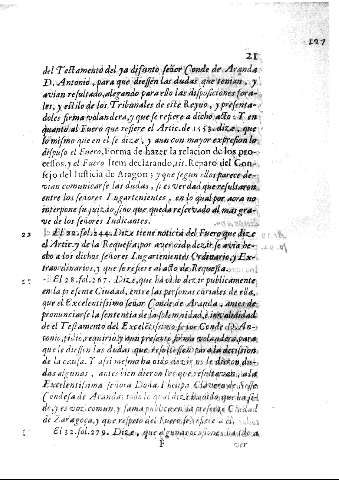 127
21
del Testamento del ya difunto señor Conde de Aranda
D. Antonio, para que diessen las dudas que tenian, y
avian resultado, alegando para ello las disposiciones fora-
les, y estilo de los Tribunales de este Reyno, y presenta-
doles firma volandera, y que se refiere a dicho acto: Y en
quanto al Fuero que refiere el Artic. de 1553. dize, que
lo mismo que en el se dize, y aun con mayor expresion lo
dispuso el Fuero, Forma de hazer la relacion de los pro-
cessos, y el Fuero Item declarando, tit. Reparo del Con-
sejo del Iusticia de Aragon; y que segun ellos parece de-
vian comunicarse las dudas, si es verdad que resultaron
entre los señores Lugartenientes, en lo qual por aora no
interpone su juizio, sino que queda reservado al mas gra-
ve de los señores Iudicantes.
23 El 22. fol. 244. Dize tiene noticia del Fuero que dize
el Artic. y de la Requesta, por aver oido dezir se avia he-
cho a los dichos señores Lugartenientes Ordinario, y Ex-
traordinarios, y que se refiere al acto de Requesta.
El 28. fol. 267. Dize, que ha oido dezir publicamente,
en la presente Ciudad, entre personas curiales de ella,
que el Excelentissimo señor Conde de Aranda, antes de
pronunciarse la sentencia de la solemnidad, è invalididad
de el Testamento del Excelentissimo señor Conde D. An-
tonio, pidio, requirio, y aun presentò firma volandera, para
que le diessen las dudas que resultassen para la decission
de la causa. Y assi mesmo ha oido dezir, no le dieron du-
das algunas, antes bien dieron las que resultavan, a la
Excelentissima señora Doña Phelipa Clavero de Sesse
Condesa de Aranda: todo lo qual dize ha oido, que ha si-
do, y es voz comun, y fama publica en la presente Ciudad
de Zaragoça, y que respeto del Fuero se refiere a
El 32. fol. 279. Dize, que algunas ocasiones ha oido a
F ver